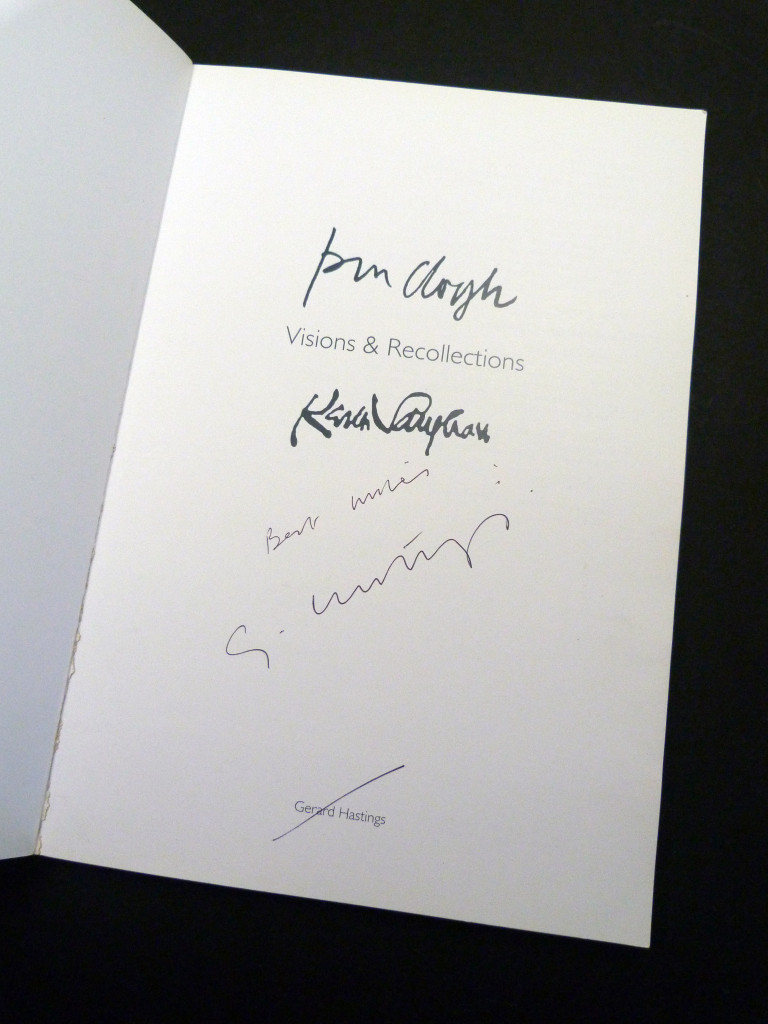 prun clough
Visions & Recollections
Keith Vaughan
Best wishes
G. Hastings
Gerard Hastings